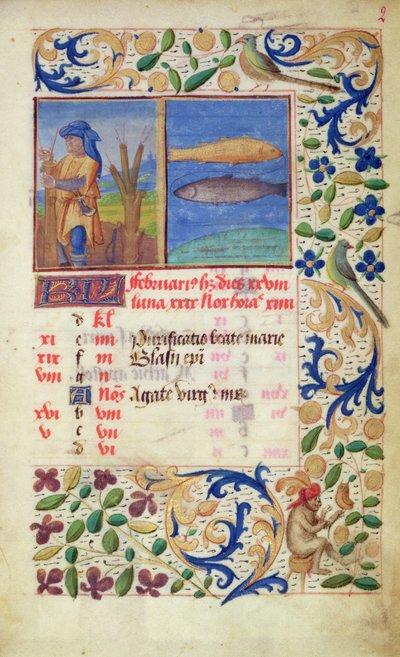 2
KL Februari⁹ hʒ dies xxviii
luna xxix Nox horaˢ xiiii
d kł
xi e iiii Purificatio beate marie
xix f iii Blasii ep̄i
viii g ii
A Noᷤ Agate virgˢ
xvi b viii
v c vii
d vi